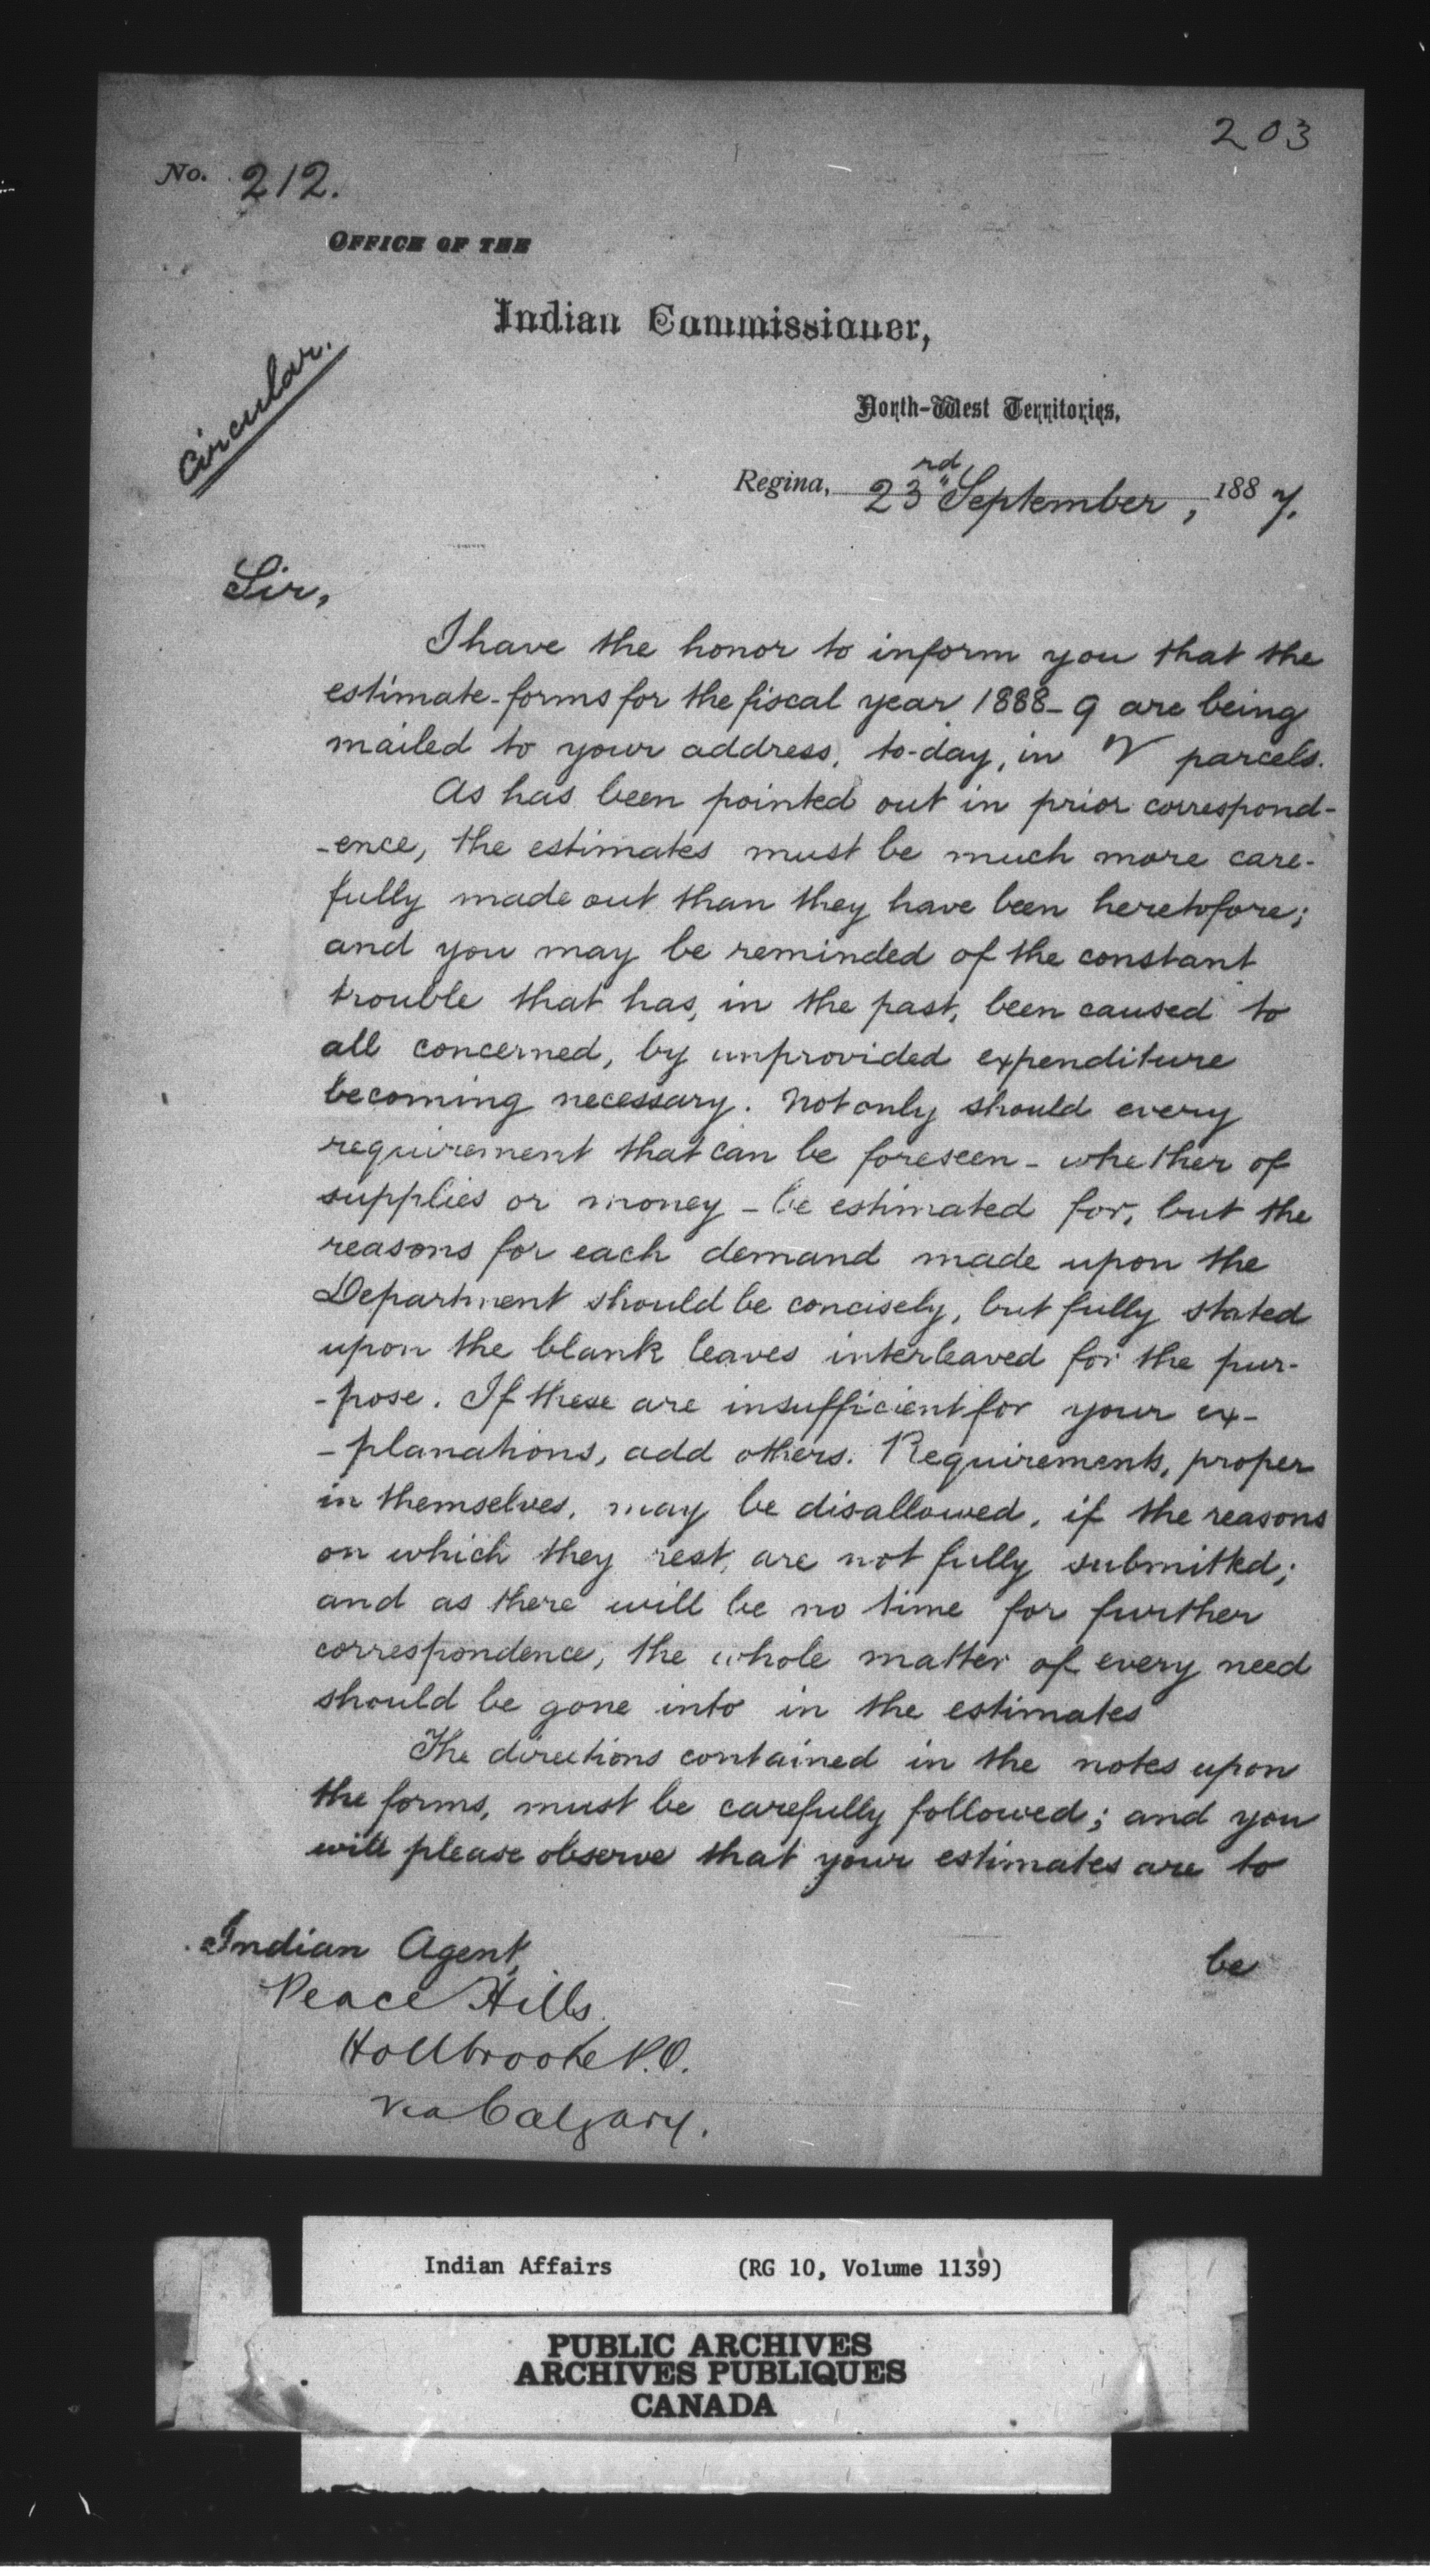 203
No. 212.
OFFICE OF THE
Indian Commissioner,
Circular.
North-West Territories,
Regina, 23rd September, 1887.
Sir,
I have the honor to inform you that the
estimate-forms for the fiscal year 1888-9 are being
mailed to your address, to-day, in parcels.
As has been pointed out in prior correspond-
-ence, the estimates must be much more care-
fully made out than they have been heretofore;
and you may be reminded of the constant
trouble that has, in the past, been caused to
all concerned, by unprovided expenditure
becoming necessary. Not only should every
requirement that can be foreseen - whether of
supplies or money - be estimated for, but the
reasons for each demand made upon the
Department should be concisely, but fully stated
upon the blank leaves interleaved for the pur-
-pose. If these are insufficient for your ex-
-planations, add others. Requirements, proper
in themselves, may be disallowed, if the reasons
on which they rest, are not fully submitted;
and as there will be no time for further
correspondence, the whole matter of every need
should be gone into in the estimates
The directions contained in the notes upon
the forms, must be carefully followed; and you
will please observe that your estimates are to
be
Indian Agent,
Peace Hills.
Hollbrooke P.O.
via Calgary.
Indian Affairs (RG 10, Volume 1139)
PUBLIC ARCHIVES
ARCHIVES PUBLIQUES
CANADA